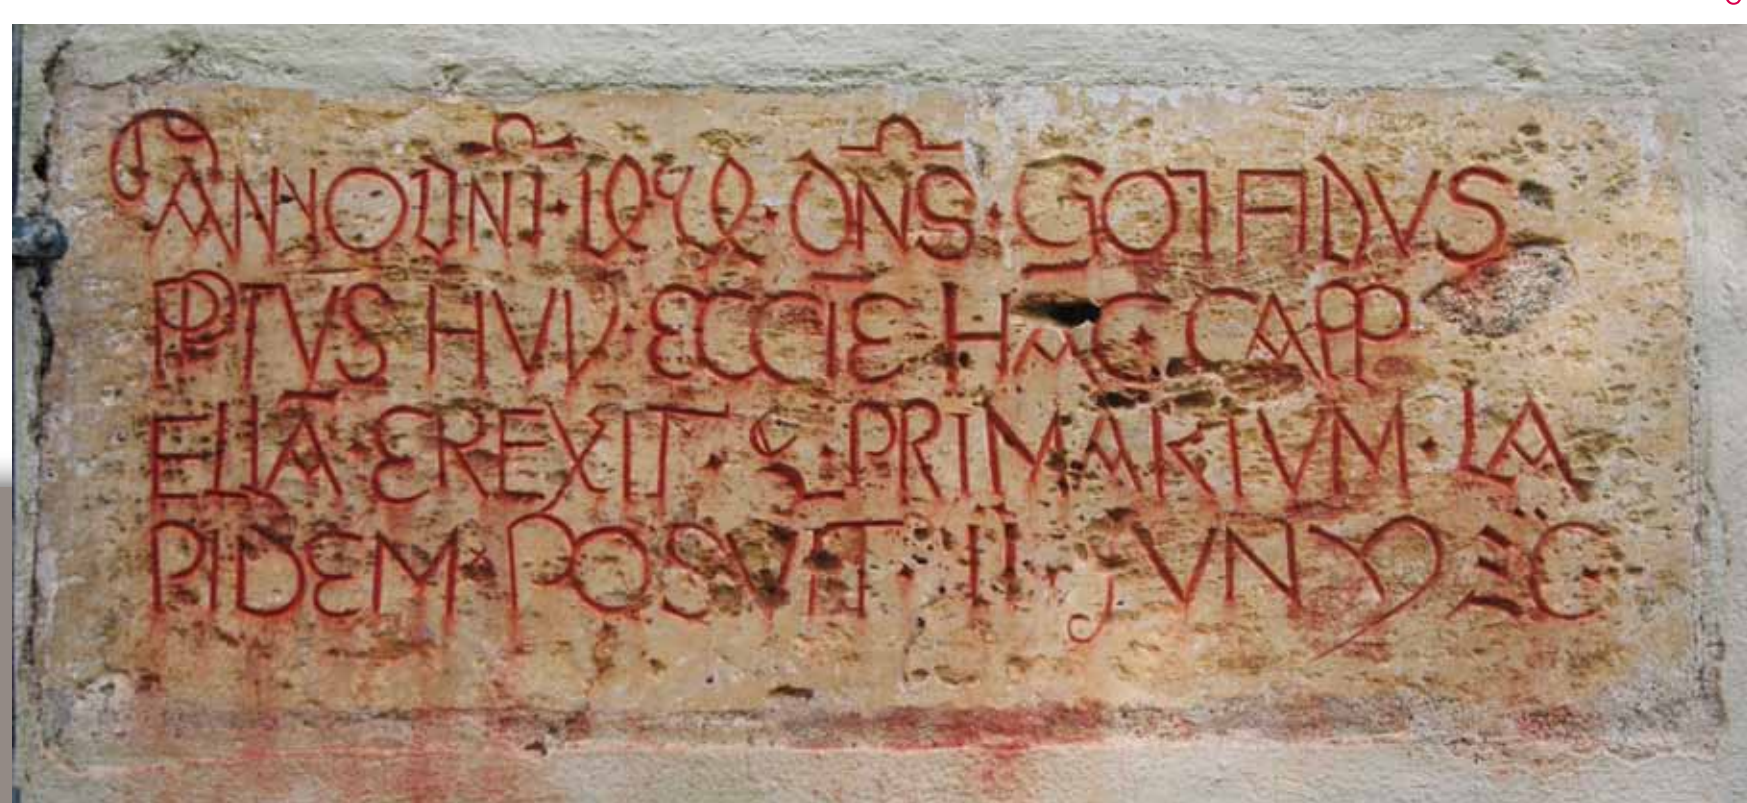 ANNO DN̄I · 1494 · DN̄S · GOTFIDVS
PPTVS HVIV · ECCĪE HĀC CAPP
ELLĀ · EREXIT · & · PRIMARIVM · LA
PIDEM · POSVIT · II · JVNY